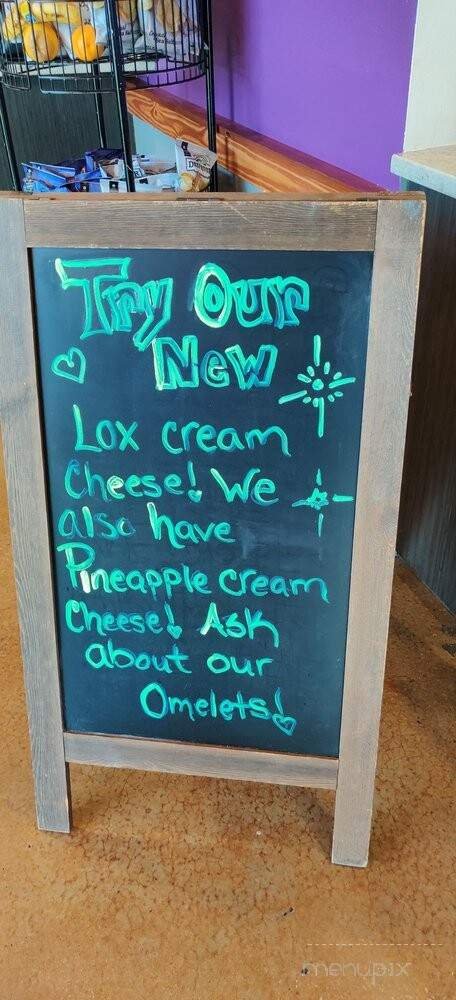 Try Our
New
Lox cream
Cheese! We
also have
Pineapple cream
Cheese! Ask
about our
Omelets!
menupix